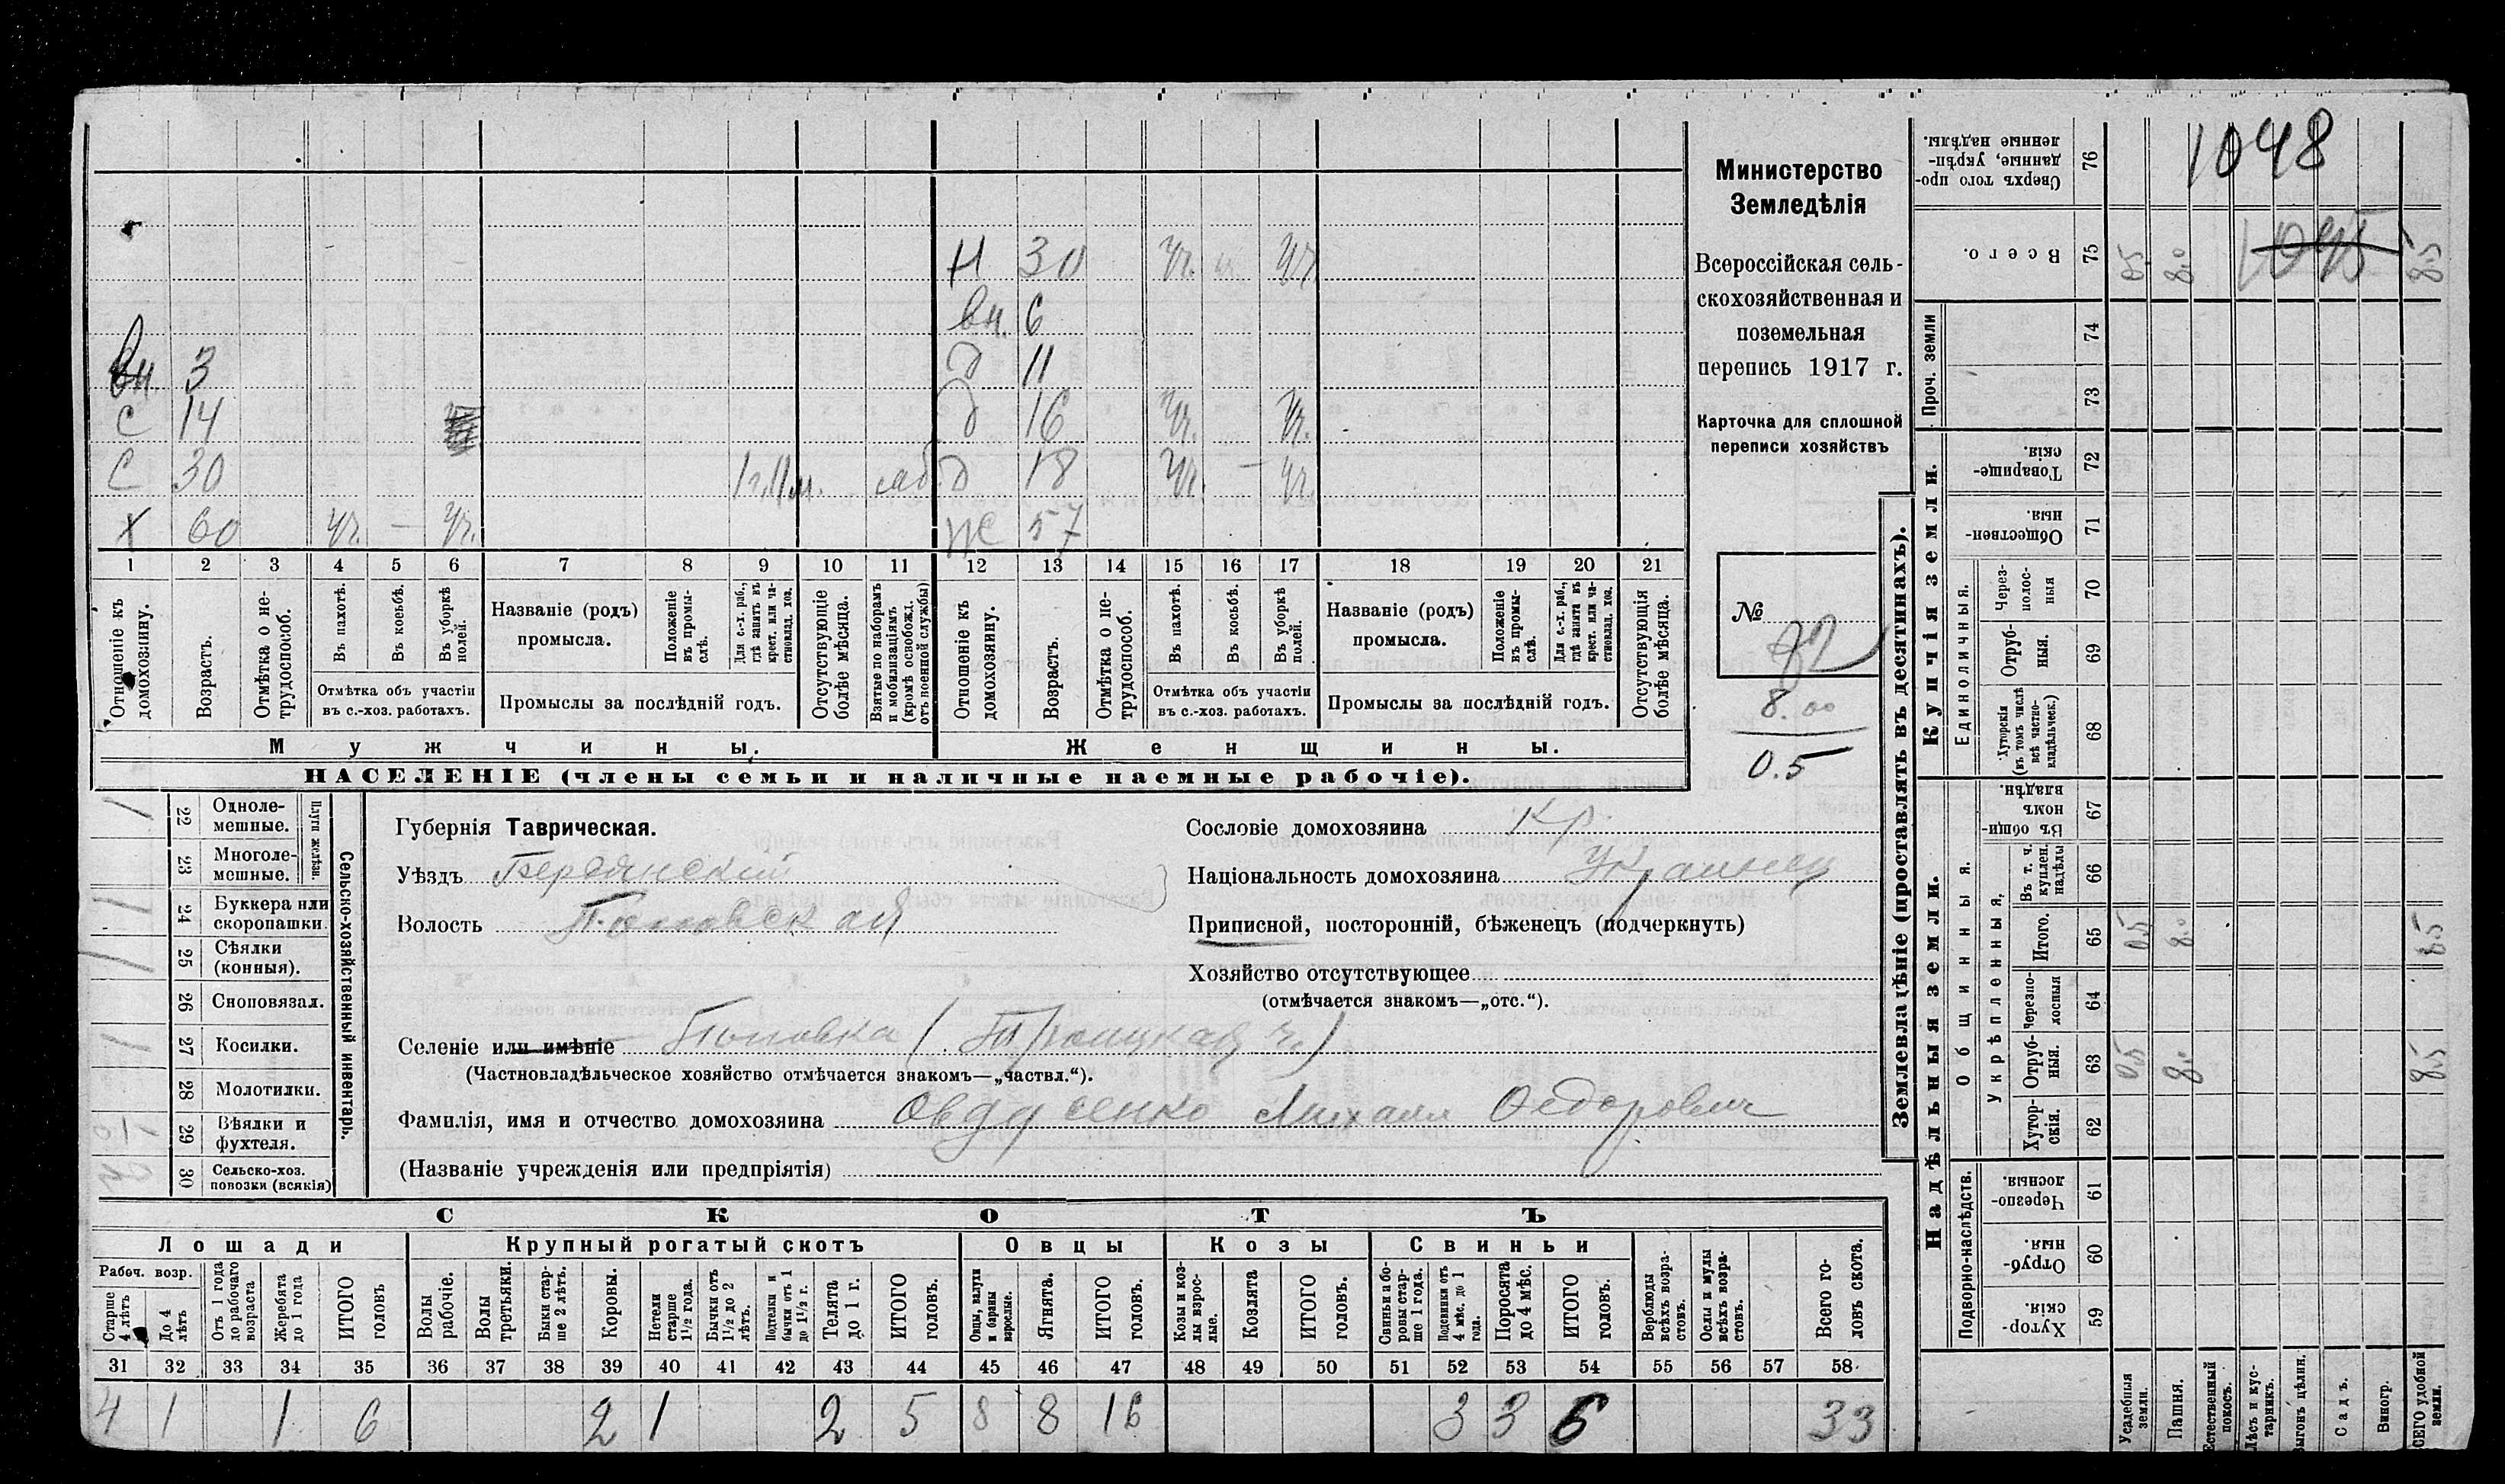 1048
1045
Н 30 уч. уч.
вн. 6
вн. 3 д 11
С 14 д 16 уч. уч.
С 30 1 г. 11 м. моб. д 18 уч. – уч.
Х 60 уч. – уч. Ж 57
1 2 3 4 5 6 7 8 9 10 11 12 13 14 15 16 17 18 19 20 21
Отношеніе къ домохозяину.
Возрастъ.
Отмѣтка о не-трудоспособ.
Въ пахотѣ.
Въ косьбѣ.
Въ уборкѣ полей.
Отмѣтка объ участіи
въ с.-хоз. работахъ.
Названіе (родъ)
промысла.
Положеніе въ промы-слѣ.
Для с.-х. раб., гдѣ занятъ въ крест. или ча-стновлад. хоз.
Промыслы за послѣдній годъ.
Отсутствующіе болѣе мѣсяца.
Взятые по наборамъ и мобилизаціямъ (кромѣ освобожд. отъ военной службы)
Отношеніе къ домохозяину.
Возрастъ.
Отмѣтка о не-трудоспособ.
Въ пахотѣ.
Въ косьбѣ.
Въ уборкѣ полей.
Отмѣтка объ участіи
въ с.-хоз. работахъ.
Названіе (родъ)
промысла.
Положеніе въ промы-слѣ.
Для с.-х раб., гдѣ занята въ крест. или ча-стновлад. хоз.
Промыслы за послѣдній годъ.
Отсутствующія болѣе мѣсяца.
Мужчины. Женщины.
НАСЕЛЕНІЕ (члены семьи и наличные наемные рабочіе).
Министерство
Земледѣлія
Всероссійская сель-
скохозяйственная и
поземельная
перепись 1917 г.
Карточка для сплошной
переписи хозяйствъ
№
82
8.00
0.5
Сельско-хозяйственный инвентарь.
Плуги желѣзн.
1 22 Однолемешные.
23 Многолемешные.
1 24 Буккера или скоропашки.
1 25 Сѣялки (конныя).
26 Сноповязал.
1 27 Косилки.
28 Молотилки.
1 29 Вѣялки и фухтеля.
30 Сельско-хоз. повозки (всякія)
Губернія Таврическая.
Уѣздъ Бердянскій
Волость Поповская
Сословіе домохозяина Кр.
Національность домохозяина Украинец
Приписной, посторонній, бѣженецъ (подчеркнуть)
Хозяйство отсутствующее
(отмѣчается знакомъ—„отс.“).
Селеніе или имѣніе Поповка (Троицкая ч.)
(Частновладѣльческое хозяйство отмѣчается знакомъ—„частвл.“).
Фамилія, имя и отчество домохозяина Овдиенко Михаил Федорович
(Названіе учрежденія или предпріятія)
СКОТЪ
Лошади Крупный рогатый скотъ Овцы Козы Свиньи
Рабоч. возр.
Старше 4 лѣтъ
До 4 лѣтъ
Отъ 1 года до рабочаго возраста
Жеребята до 1 года
ИТОГО головъ
Волы рабочіе.
Волы третьяки.
Быки стар-ше 2 лѣтъ.
Коровы.
Нетели старше 1½ года.
Бычки отъ 1½ до 2 лѣтъ.
Подтелки и бычки отъ 1 до 1½ г.
Телята до 1 г.
ИТОГО головъ.
Овцы, валухи и бараны взрослые.
Ягнята.
ИТОГО головъ.
Козы и коз-лы взрос-лые.
Козлята
ИТОГО головъ.
Свиньи и бо-ровы стар-ше 1 года.
Подсвинки отъ 4 мѣс. до 1 года.
Поросята до 4 мѣс.
ИТОГО головъ.
Верблюды всѣхъ возра-стовъ.
Ослы и мулы всѣхъ возра-стовъ.
Всего го-ловъ скота.
31 32 33 34 35 36 37 38 39 40 41 42 43 44 45 46 47 48 49 50 51 52 53 54 55 56 57 58
4 1 1 6 2 1 2 5 8 8 16 3 3 6 33
Землевладѣніе (проставлять въ десятинахъ).
Купчія земли.
Надѣльныя земли.
Сверхъ того про-данные, укрѣп-ленные надѣлы. 76
Всего. 75 0.5 8.0 8.5
Проч. земли 74
73
Товарище-скія. 72
Обществен-ныя. 71
Единоличныя.
Через-полос-ныя 70
Отруб-ныя. 69
Хуторскія (въ томъ числѣ всѣ частно-владѣльческ.) 68
Общинныя.
Въ общин-номъ владѣн. 67
Укрѣпленныя,
Въ т. ч. куплен. надѣлы 66
Итого. 65 0.5 8.0 8.5
Черезпо-лосныя 64
Отруб-ныя. 63 0.5 8.0 8.5
Хутор-скія. 62
Подворно-наслѣдств.
Черезпо-лосныя. 61
Отруб-ныя. 60
Хутор-скія. 59
Усадебныя земли.
Пашня.
Естественный покосъ.
Лѣсъ и кус-тарникъ.
Выгонъ цѣлин.
Садъ.
Виногр.
ВСЕГО удобной земли.